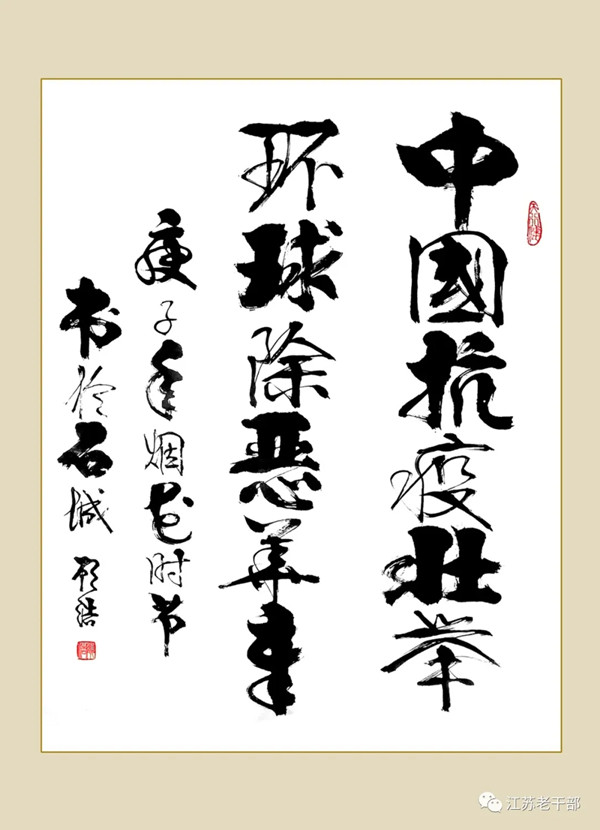 中國抗疫壮举
环球除恶
庚子年烟花时节
书於石城 顾浩
江苏老干部